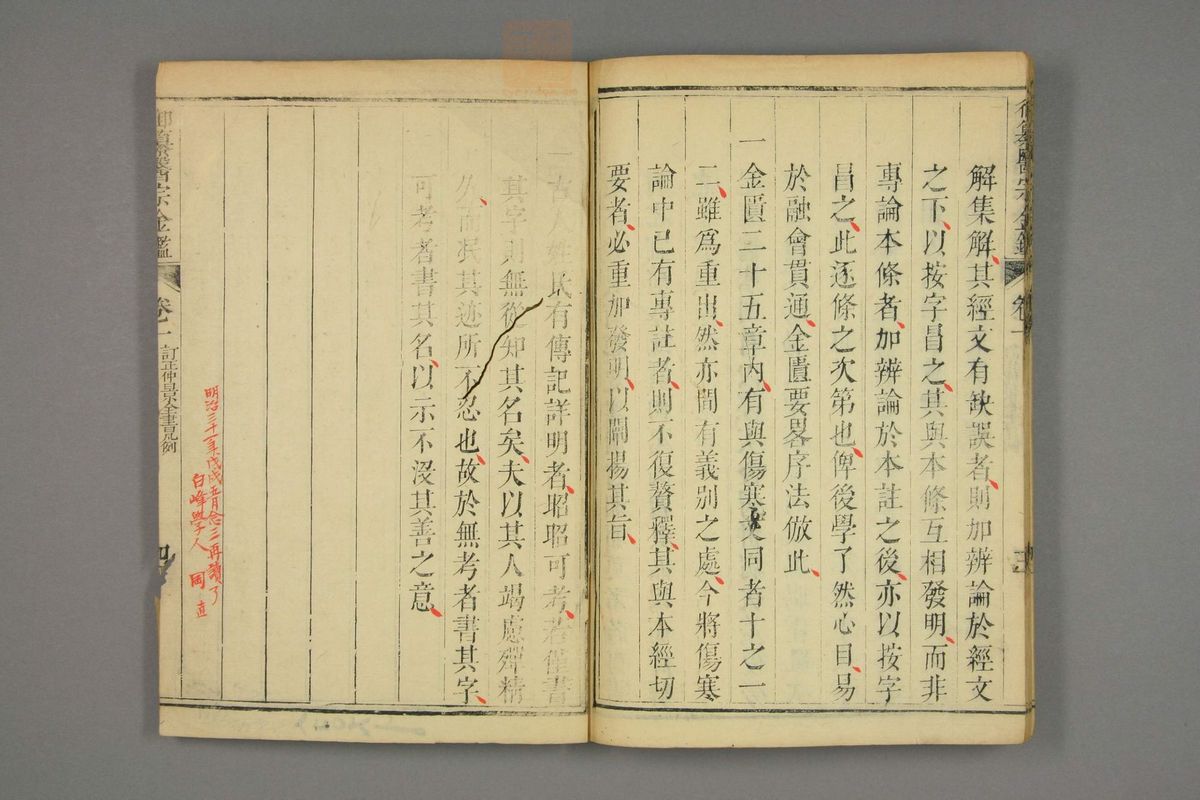 解集解其經文有缺誤者則加辨論於經文
之下以按字冒之其與本條互相發明而非
專論本條者加辨論於本註之後亦以按字
冒之此逐條之次第也俾後學了然心目易
於融會貫通金匱要畧序法倣此
一金匱二十五章內有與傷寒文同者十之一
二雖爲重出然亦間有義別之處今將傷寒
論中已有專註者則不復贅釋其與本經切
要者必重加發明以闡揚其旨
一古人姓氏有傳記詳明者昭昭可考若僅書
其字則無從知其名矣夫以其人竭慮殫精
久而泯其迹所不忍也故於無考者書其字
可考者書其名以示不沒其善之意
明治三十一年戊戌五月念三再讀了
白峰學人 岡 直
御纂醫宗金鑑 卷一 訂正仲景全書凡例
御纂醫宗金鑑 卷一